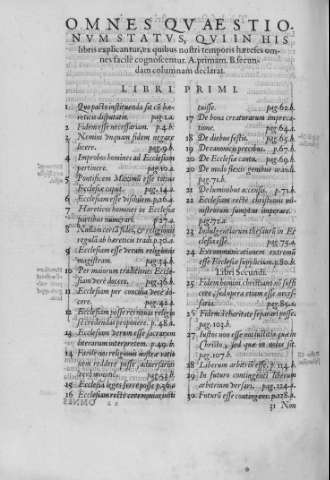 OMNES QVAESTIO-
NVM STATVS, QVI IN HIS
libris explicantur, ex quibus nostri temporis hæreses om-
nes facilè cognoscentur. A. primam, B. secun-
dam columnam declarat.
LIBRI PRIMI.
1 Quo pacto instituenda sit cũ hæ-
retico disputatio. pag.1.a.
2 Fidem esse necessariam. p.4.b.
3 Nemini vnquam fidem negare
licere. pag.9.b.
4 Improbos homines ad Ecclesiam
pertinere. pag.10.a.
5 Pontificem Maximũ esse totius
Ecclesiæ caput. pag.14.a.
6 Ecclesiam esse visibilem. p.26.a.
7 Hæreticos homines in Ecclesiæ
partibus numerari. p.27.a.
8 Nullam certã fidei, ac religionis
regulã ab hæreticis tradi. p.30.a.
9 Ecclesiam esse veram religionis
magistram. pag.34.b.
10 Per maiorum traditiones Eccle-
siam verè docere. pag.36.b.
11 Ecclesiam per concilia verè do-
cere. pag.42.a.
12 Ecclesiam posse res nouas religio
si credendas proponere. p.48.b.
13 Ecclesiam verum esse sacrarum
literarum interpretem. p.49.b.
14 Facile nos religionis nostræ ratio
nem reddere posse aduersariis
pag.52.b.
15 Ecclesiã leges ferre posse p.59.a
16 Ecclesiam rectè ceremonias insti
tuisse. pag.62.b.
17 De bona creaturarum impreca-
tione. pag.64.a.
18 De diebus festis. pag.65.b.
19 De canonicis precibus. p.67.b.
20 De Ecclesiæ cantu. pag.69.b.
20 De modo flexis genibus orandi.
pag.71.b.
21 De luminibus accensis. p.71.b.
22 Ecclesiam rectè christianis mi-
nistrorum sumptus imperare.
pag.72.a.
23 Indulgentiarum thesaurũ in Ec
clesia esse. pag.75.a.
24 Excommunicationem extremã
esse Ecclesiæ p.80.b.
Libri Secundi.
25 Fidem hominis christiani nõ suffi
cere, sed opera etiam esse necess
saria. pag.85.a.
26 Fidem à charitate separari posse.
pag.103.b.
27 Iustos non esse
Christo, sed quæ in nobis sit.
pag.107.b.
28 Liberum arbitrium esse. p.114.b.
29 In futuro contingenti liberum
arbitrium versari. pag.124.a.
30 Futurũ esse contingens. p.126.a.
31 Non